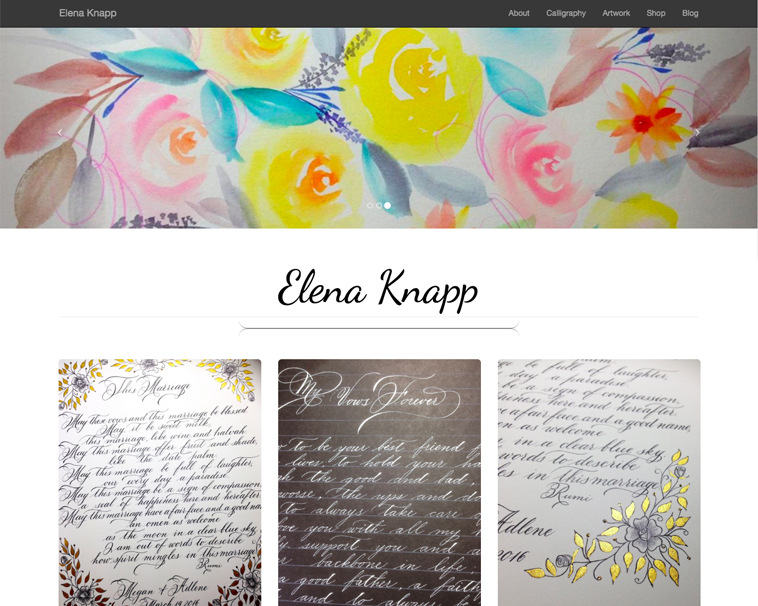 Elena Knapp
About Calligraphy Artwork Shop Blog
Elena Knapp
This Marriage
May these vows and this marriage be blessed
May it be sweet milk,
this marriage, like wine and halvah
May this marriage offer fruit and shade,
like the date palm
May this marriage be full of laughter,
our every day a paradise
May this marriage be a sign of compassion,
a seal of happiness here and hereafter
May this marriage have a fair face and a good nam
an omen as welcome
as the moon in a clear blue sky
I am out of words to describe
how spirit mingles in this marriage
Rumi
Megan & Adlene
March 19 2016
My Vows Forever
to be your best friend
lives, to hold your ha
the good and bad,
worse, the ups and do
to always take care o
ve you with all my
support you and a
backbone in life.
a good father, a faith
and to always
be full of laughter,
day a paradise
be a sign of compassion,
piness here and hereafter,
ve a fair face and a good name,
as welcome
in a clear blue sky,
words to describe
les in this marriage
Rumi
Adlene
2016